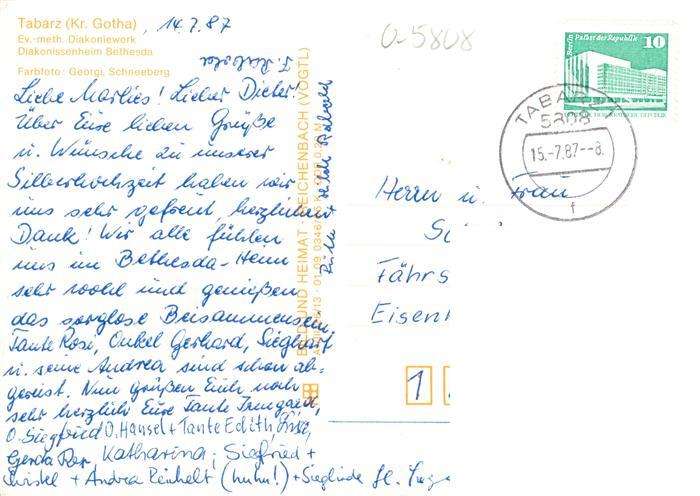 Tabarz (Kr. Gotha)
Ev.-meth. Diakoniewerk
Diakonissenheim Bethesda
Farbfoto: Georgi, Schneeberg
14.7.87
0-5808
Liebe Marlies! Lieber Dieter!
Über Eure lieben Grüße
u. Wünsche zu unserer
Silberhochzeit haben wir
uns sehr gefreut, herzlichen
Dank! Wir alle fühlen
uns im Bethesda-Heim
sehr wohl und genießen
das sorglose Beisammensein.
Tante Rosi, Onkel Gerhard, Sieghart
u. seine Andrea sind schon ab-
gereist. Nun grüßen Euch noch
sehr herzlich Eure Tante Irmgard,
O. Siegfried O. Hansel + Tante Edith,
Gerda Katharina, Siegfried +
+ Andrea Reinhelt (huhu!) + Sieglinde
BILD UND HEIMAT REICHENBACH (VOGTL)
Berlin Palast der Republik
10
TABARZ
5808
15.-7.87.--8.
f
Herrn u. Frau
Fährs
Eisen
1